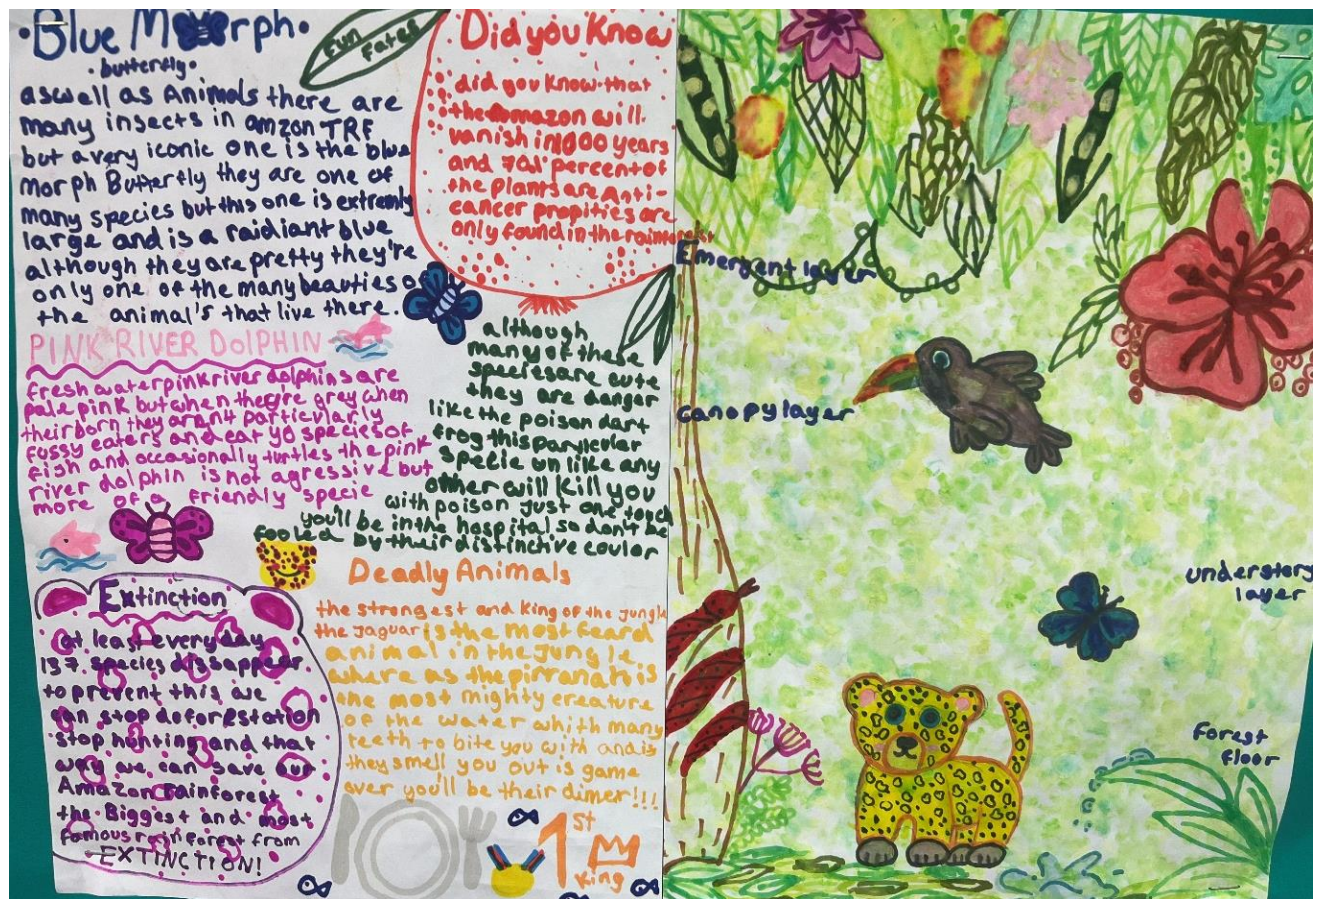 •Blue Morph•
•butterfly•
aswell as Animals there are
many insects in amzon TRF
but a very iconic one is the blue
morph Butterfly they are one of
many species but this one is extremly
large and is a raidiant blue
although they are pretty they're
only one of the many beauties o
the animal's that live there.
Fun
Did you Know
did you Know that
the amazon will
vanish in 1000 years
and 70% percent of
the plants are Anti-
cancer propities are
only found in the rainforest
PINK RIVER DOLPHIN
fresh water pink river dolphins are
pale pink but when they're grey when
their born they arent particularly
fussy eaters and eat 40 species of
fish and occasionally turtles the pink
river dolphin is not agressive but
more of a friendly specie
although
many of these
species are cute
they are danger
like the poison dart
frog this parylcular
specie un like any
other will kill you
with poison just one touch
you'll be in the hospital so don't be
fooled by their distinctive coulor
Extinction
at least every day
137 species dissappear.
to prevent this we
can stop deforestation
stop hunting and that
way we can save our
Amazon rainforest
the Biggest and most
famous rainforest from
EXTINCTION!
Deadly Animals
the strongest and King of the jungle
the Jaguar is the most feard
animal in the jungle
where as the pirranah is
one most mighty creature
of the water whith many
teeth to bite you with and is
they smell you out is game
over you'll be their dimer!!!
1st
King
Emergent layer
canopy layer
understory
layer
forest
floor